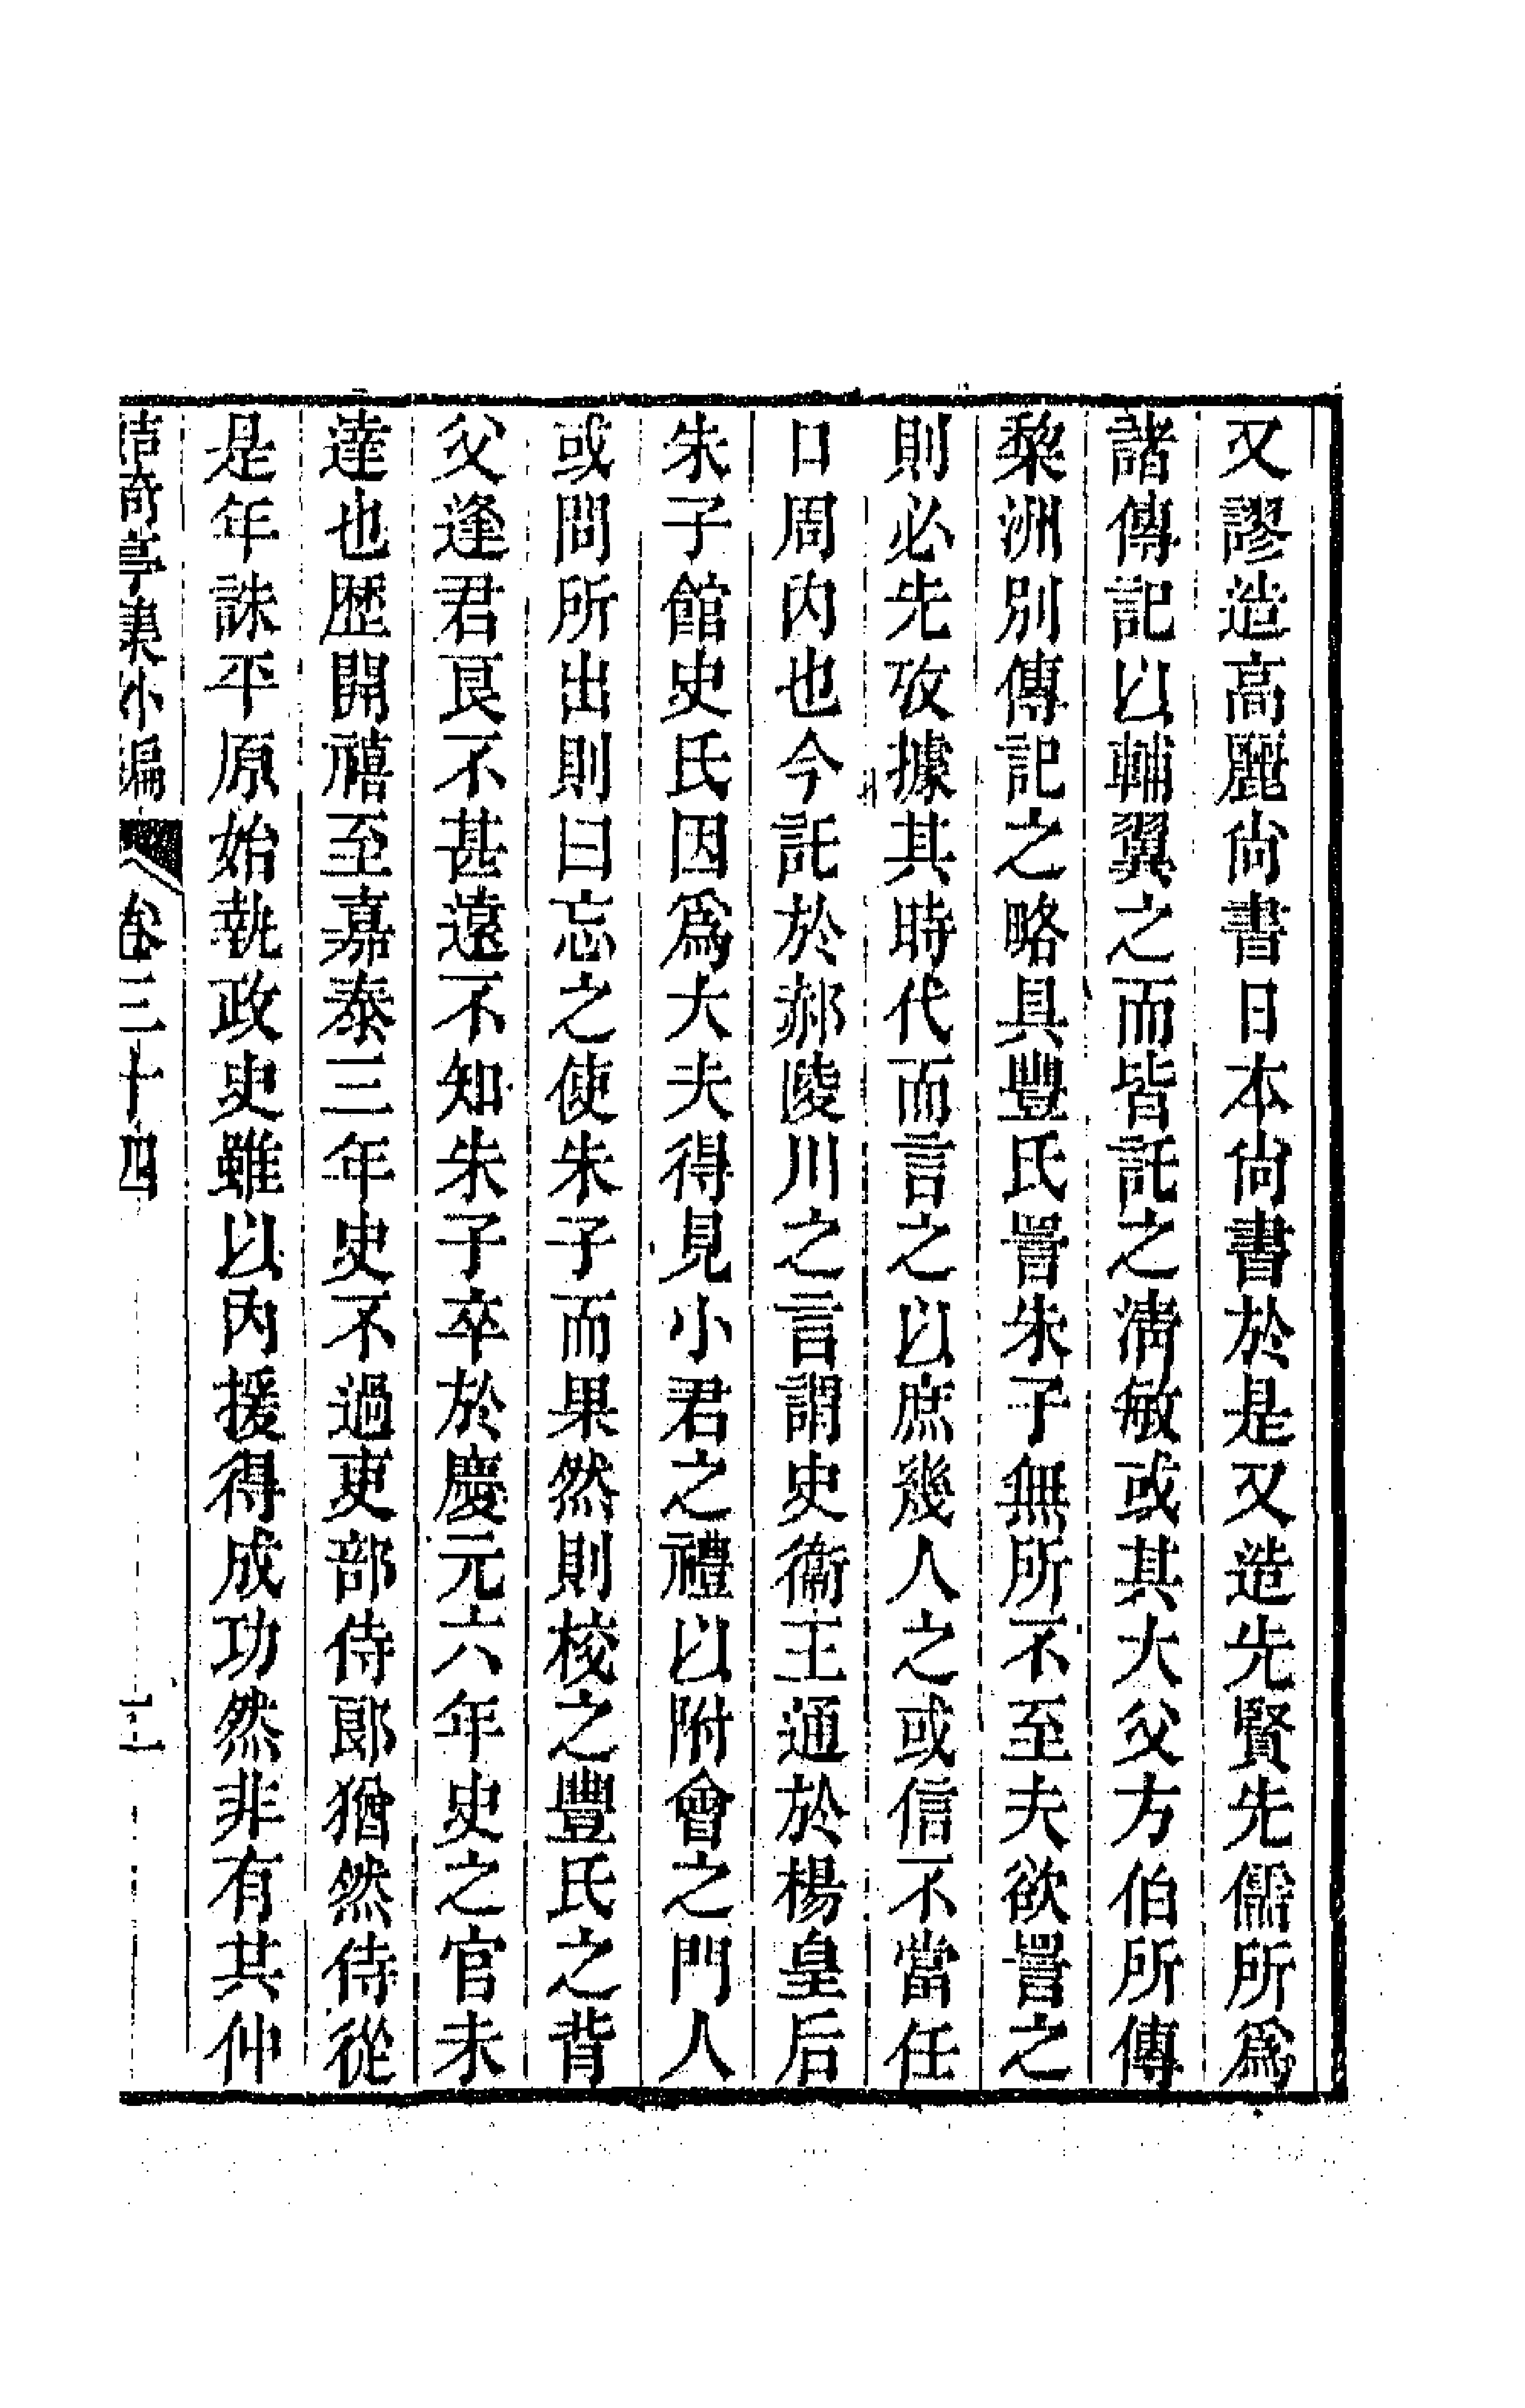 又謬造高麗尙書日本尙書於是又造先賢先儒所爲
諸傳記以輔翼之而皆託之淸敏或其大父方伯所傳
黎洲別傳記之略具豐氏詈朱子無所不至夫欲詈之
則必先攷據其時代而言之以庶幾人之或信不當任
口周內也今託於郝陵川之言謂史衞王通於楊皇后
朱子館史氏因爲大夫得見小君之禮以附會之門人
或問所出則曰忘之使朱子而果然則梭之豐氏之背
父逢君艮不甚遠不知朱子卒於慶元六年史之官未
達也歷開禧至嘉泰三年史不過吏部侍郞猶然侍從
是年誅平原始執政史雖以內援得成功然非有其仲
鮚埼亭集外編 卷三十四 二